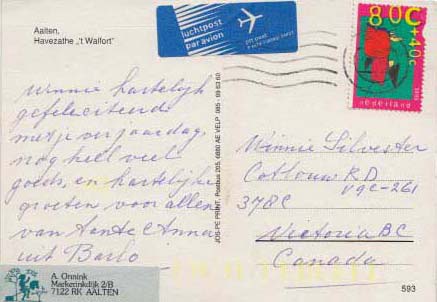 Aalten,
Havezathe „'t Walfort"
luchtpost
par avion
80c
+40c
nederland
Winnie hartelijk
gefeliciteerd
met je verjaardag,
nog heel veel
goeds, en hartelijke
groeten voor allen
van Tante Anna
uit Barlo
JOS-PE PRINT, Postbus 205, 6880 AE VELP 085 - 69 63 60
Winnie Silvester
Cotlouw RD
V9C-261
378C
Victoria BC
Canada
A. Onnink
Markerinkdijk 2/B
7122 RK AALTEN
593